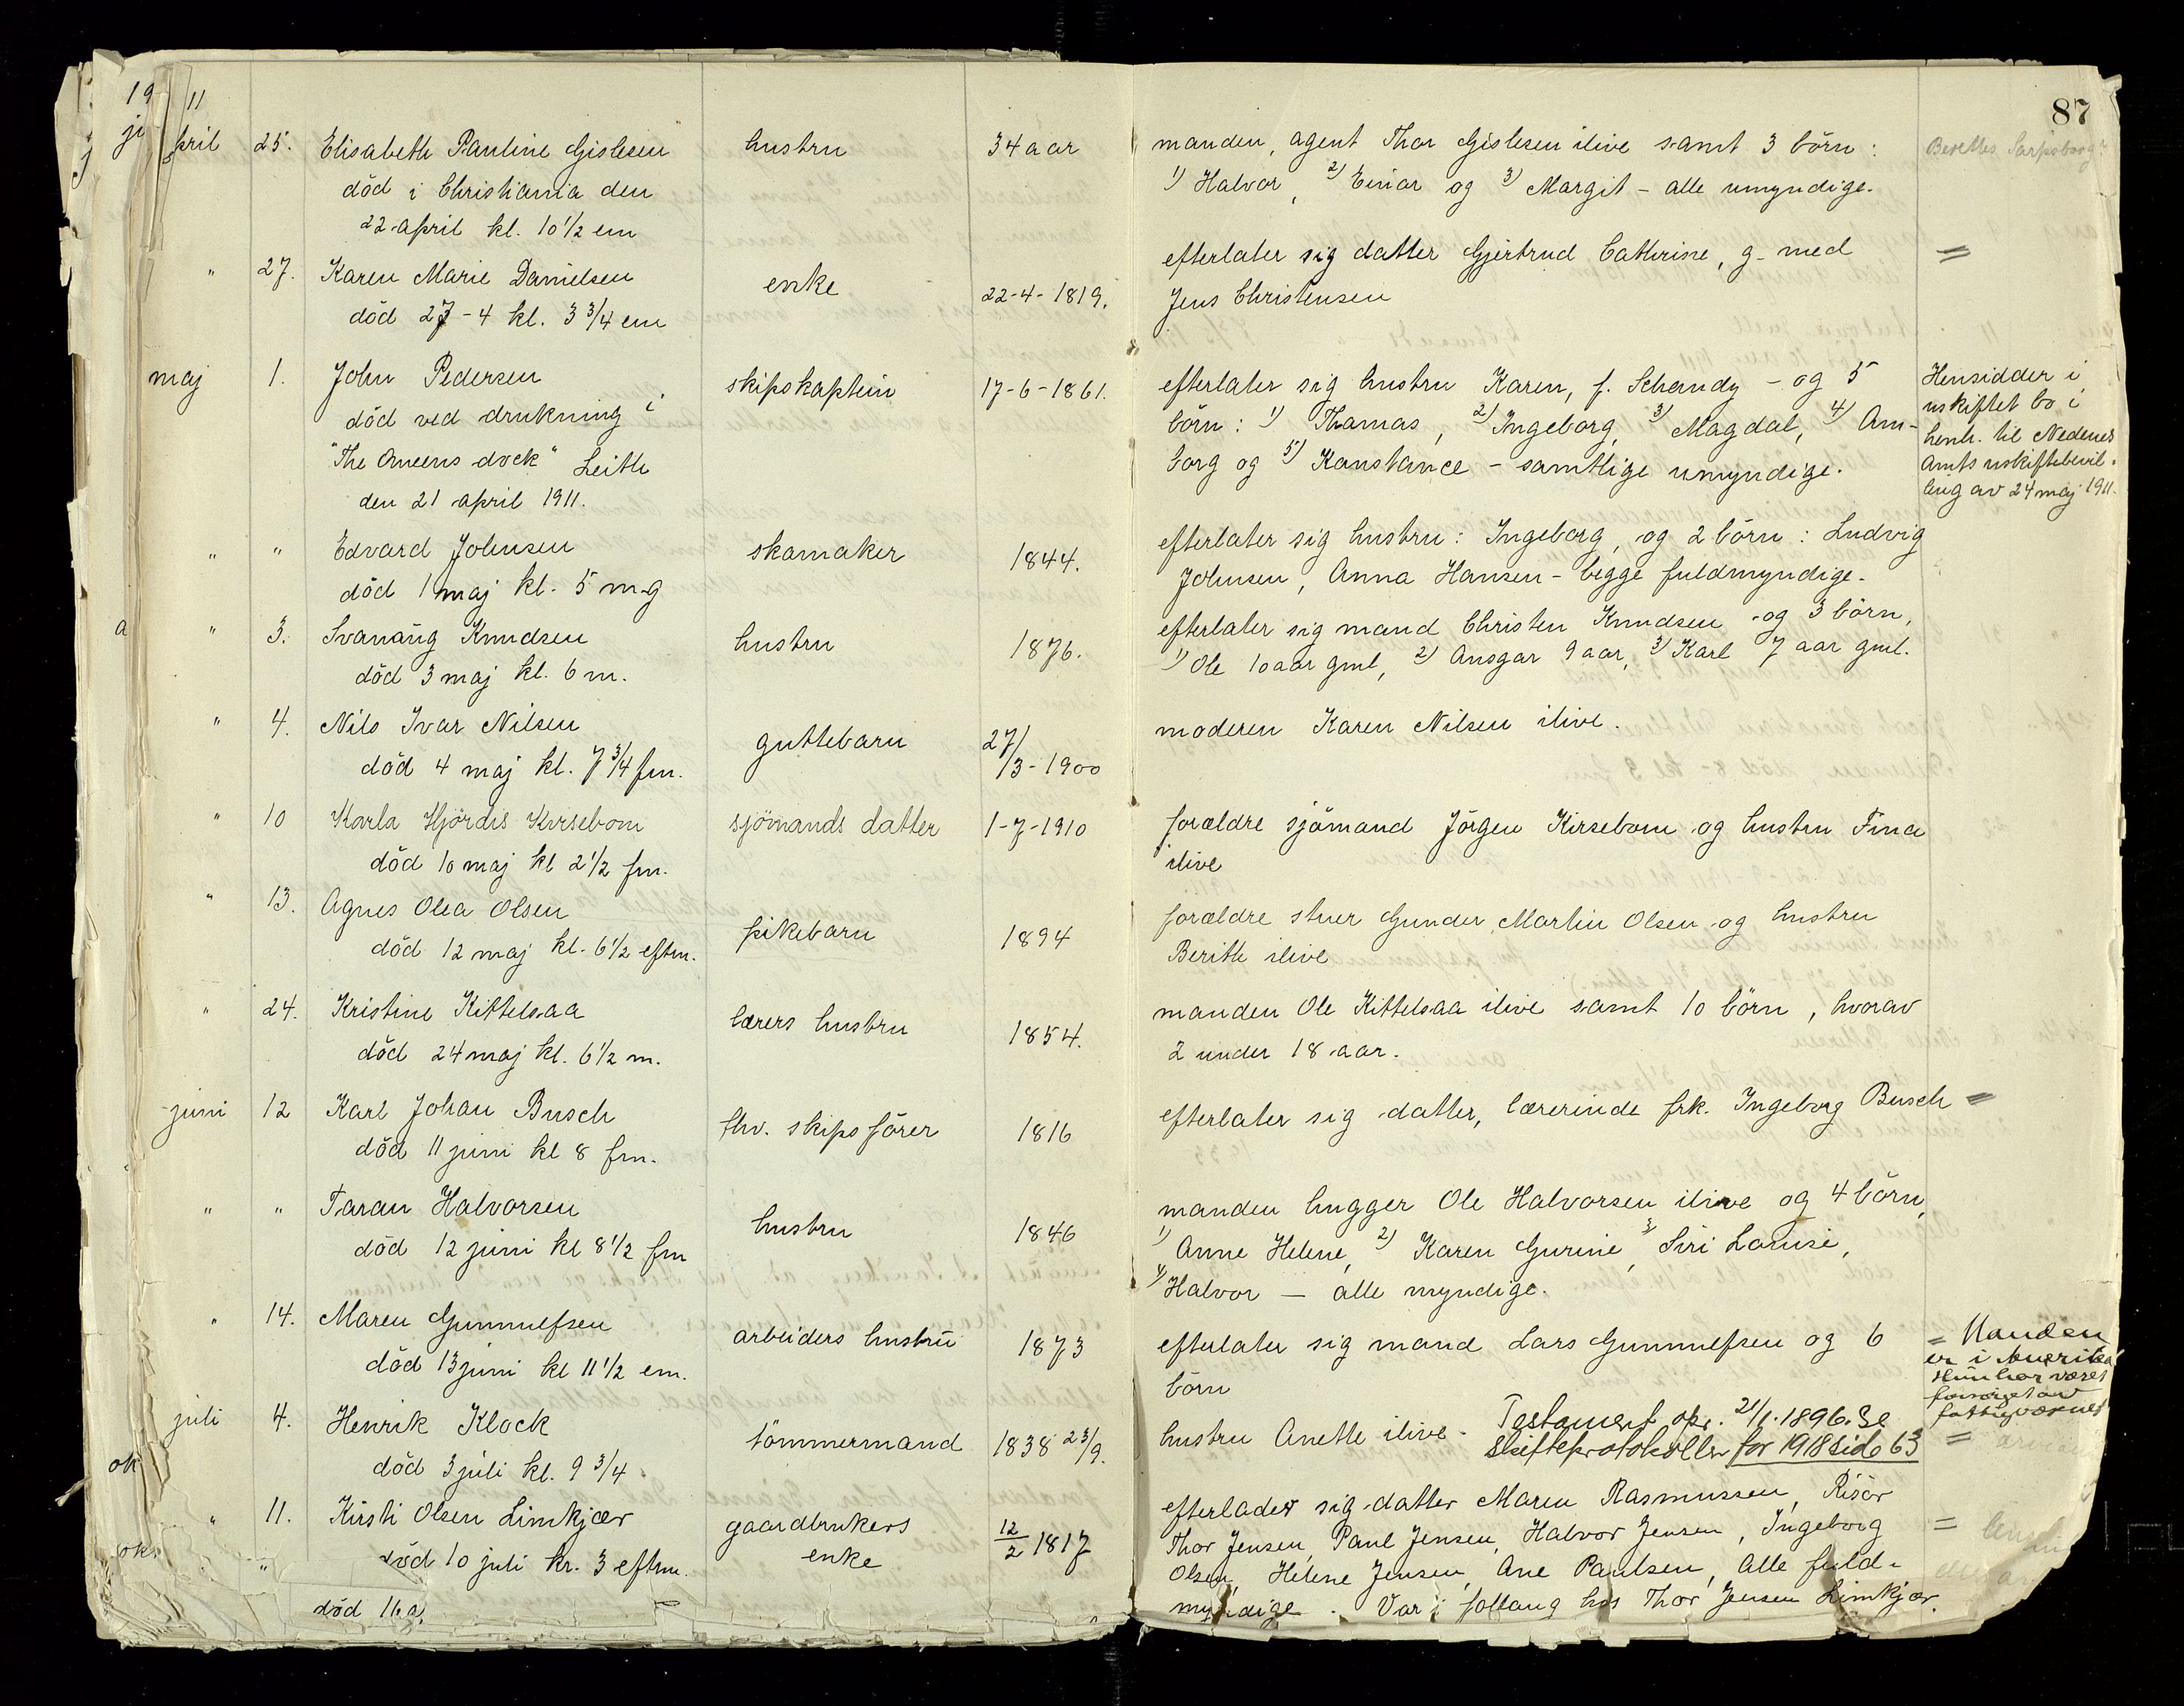 1911
87
april 25. Elisabeth Pauline Gislesen hustru 34 aar manden, agent Thor Gislesen ilive samt 3 börn: Berettes Sarpsborg?
död i Christiania den 1) Halvor, 2) Einar og 3) Margit - alle umyndige.
22 april kl. 10 1/2 em
" 27. Karen Marie Danielsen enke 22-4-1819. efterlater sig datter Gjertrud Cathrine, g. med =
död 27-4 kl. 3 3/4 em Jens Christensen
maj 1. John Pedersen skipskaptein 17-6-1861. efterlater sig hustru Karen, f. Schandy - og 5 Hensidder i
död ved drukning i börn: 1) Thomas, 2) Ingeborg, 3) Magdal, 4) Am- uskiftet bo i
"The Queens dock" Leith borg og 5) Konstance - samtlige umyndige. henh. til Nedenes
den 21 april 1911. Amts uskiftebevil-
ling av 24 maj 1911.
" " Edvard Johnsen skomaker 1844. efterlater sig hustru: Ingeborg, og 2 börn: Ludvig
död 1 maj kl. 5 mg Johnsen, Anna Hansen - begge fuldmyndige.
a " 3. Svanaug Knudsen hustru 1876. efterlater sig mand Christen Knudsen og 3 börn,
död 3 maj kl. 6 m. 1) Ole 10 aar gml, 2) Ansgar 9 aar, 3) Karl 7 aar gml.
" 4. Nils Ivar Nilsen guttebarn 27/3-1900 moderen Karen Nilsen ilive.
död 4 maj kl. 7 3/4 fm.
" 10 Karla Hjördis Kirsebom sjömands datter 1-7-1910 forældre sjömand Jörgen Kirsebom og hustru Fina
död 10 maj kl 2 1/2 fm. ilive
" 13. Agnes Olea Olsen pikebarn 1894 forældre stuer Gunder Martin Olsen og hustru
död 12 maj kl. 6 1/2 eftm. Berith ilive
" 24. Kristine Kittelsaa lærers hustru 1854. manden Ole Kittelsaa ilive samt 10 börn, hvorav
död 24 maj kl. 6 1/2 m. 2 under 18 aar.
juni 12 Karl Johan Busch fhv. skipsförer 1816 efterlater sig datter, lærerinde frk. Ingeborg Busch =
död 11 juni kl 8 fm.
" " Taran Halvorsen hustru 1846 manden hugger Ole Halvorsen ilive og 4 börn,
död 12 juni kl 8 1/2 fm 1) Anne Helene, 2) Karen Gurine, 3 Siri Louise,
4) Halvor - alle myndige.
" 14. Maren Gunnulfsen arbeiders hustru 1873 efterlater sig mand Lars Gunnulfsen og 6 = Manden
död 13 juni kl 11 1/2 em. börn er i Amerika
Hun har været
forsörget av
fattigvæsnet
juli 4. Henrik Klock tömmermand 1838 23/9. hustru Anette ilive. Testament opr. 21/1. 1896. Se
ok död 3 juli kl. 9 3/4 skifteprotokollen for 1918 side 63 =
" 11. Kirsti Olsen Limkjær gaardbrukers 12/2 1817 efterlader sig datter Maren Rasmussen, Risör
ok. död 10 juli kr. 3 eftm. enke Thor Jensen, Paul Jensen, Halvor Jensen, Ingeborg =
" Olsen, Helene Jensen, Ane Paulsen, Alle fuld-
död 16 a. myndige. Var i follaug hos Thor Jensen Limkjær.